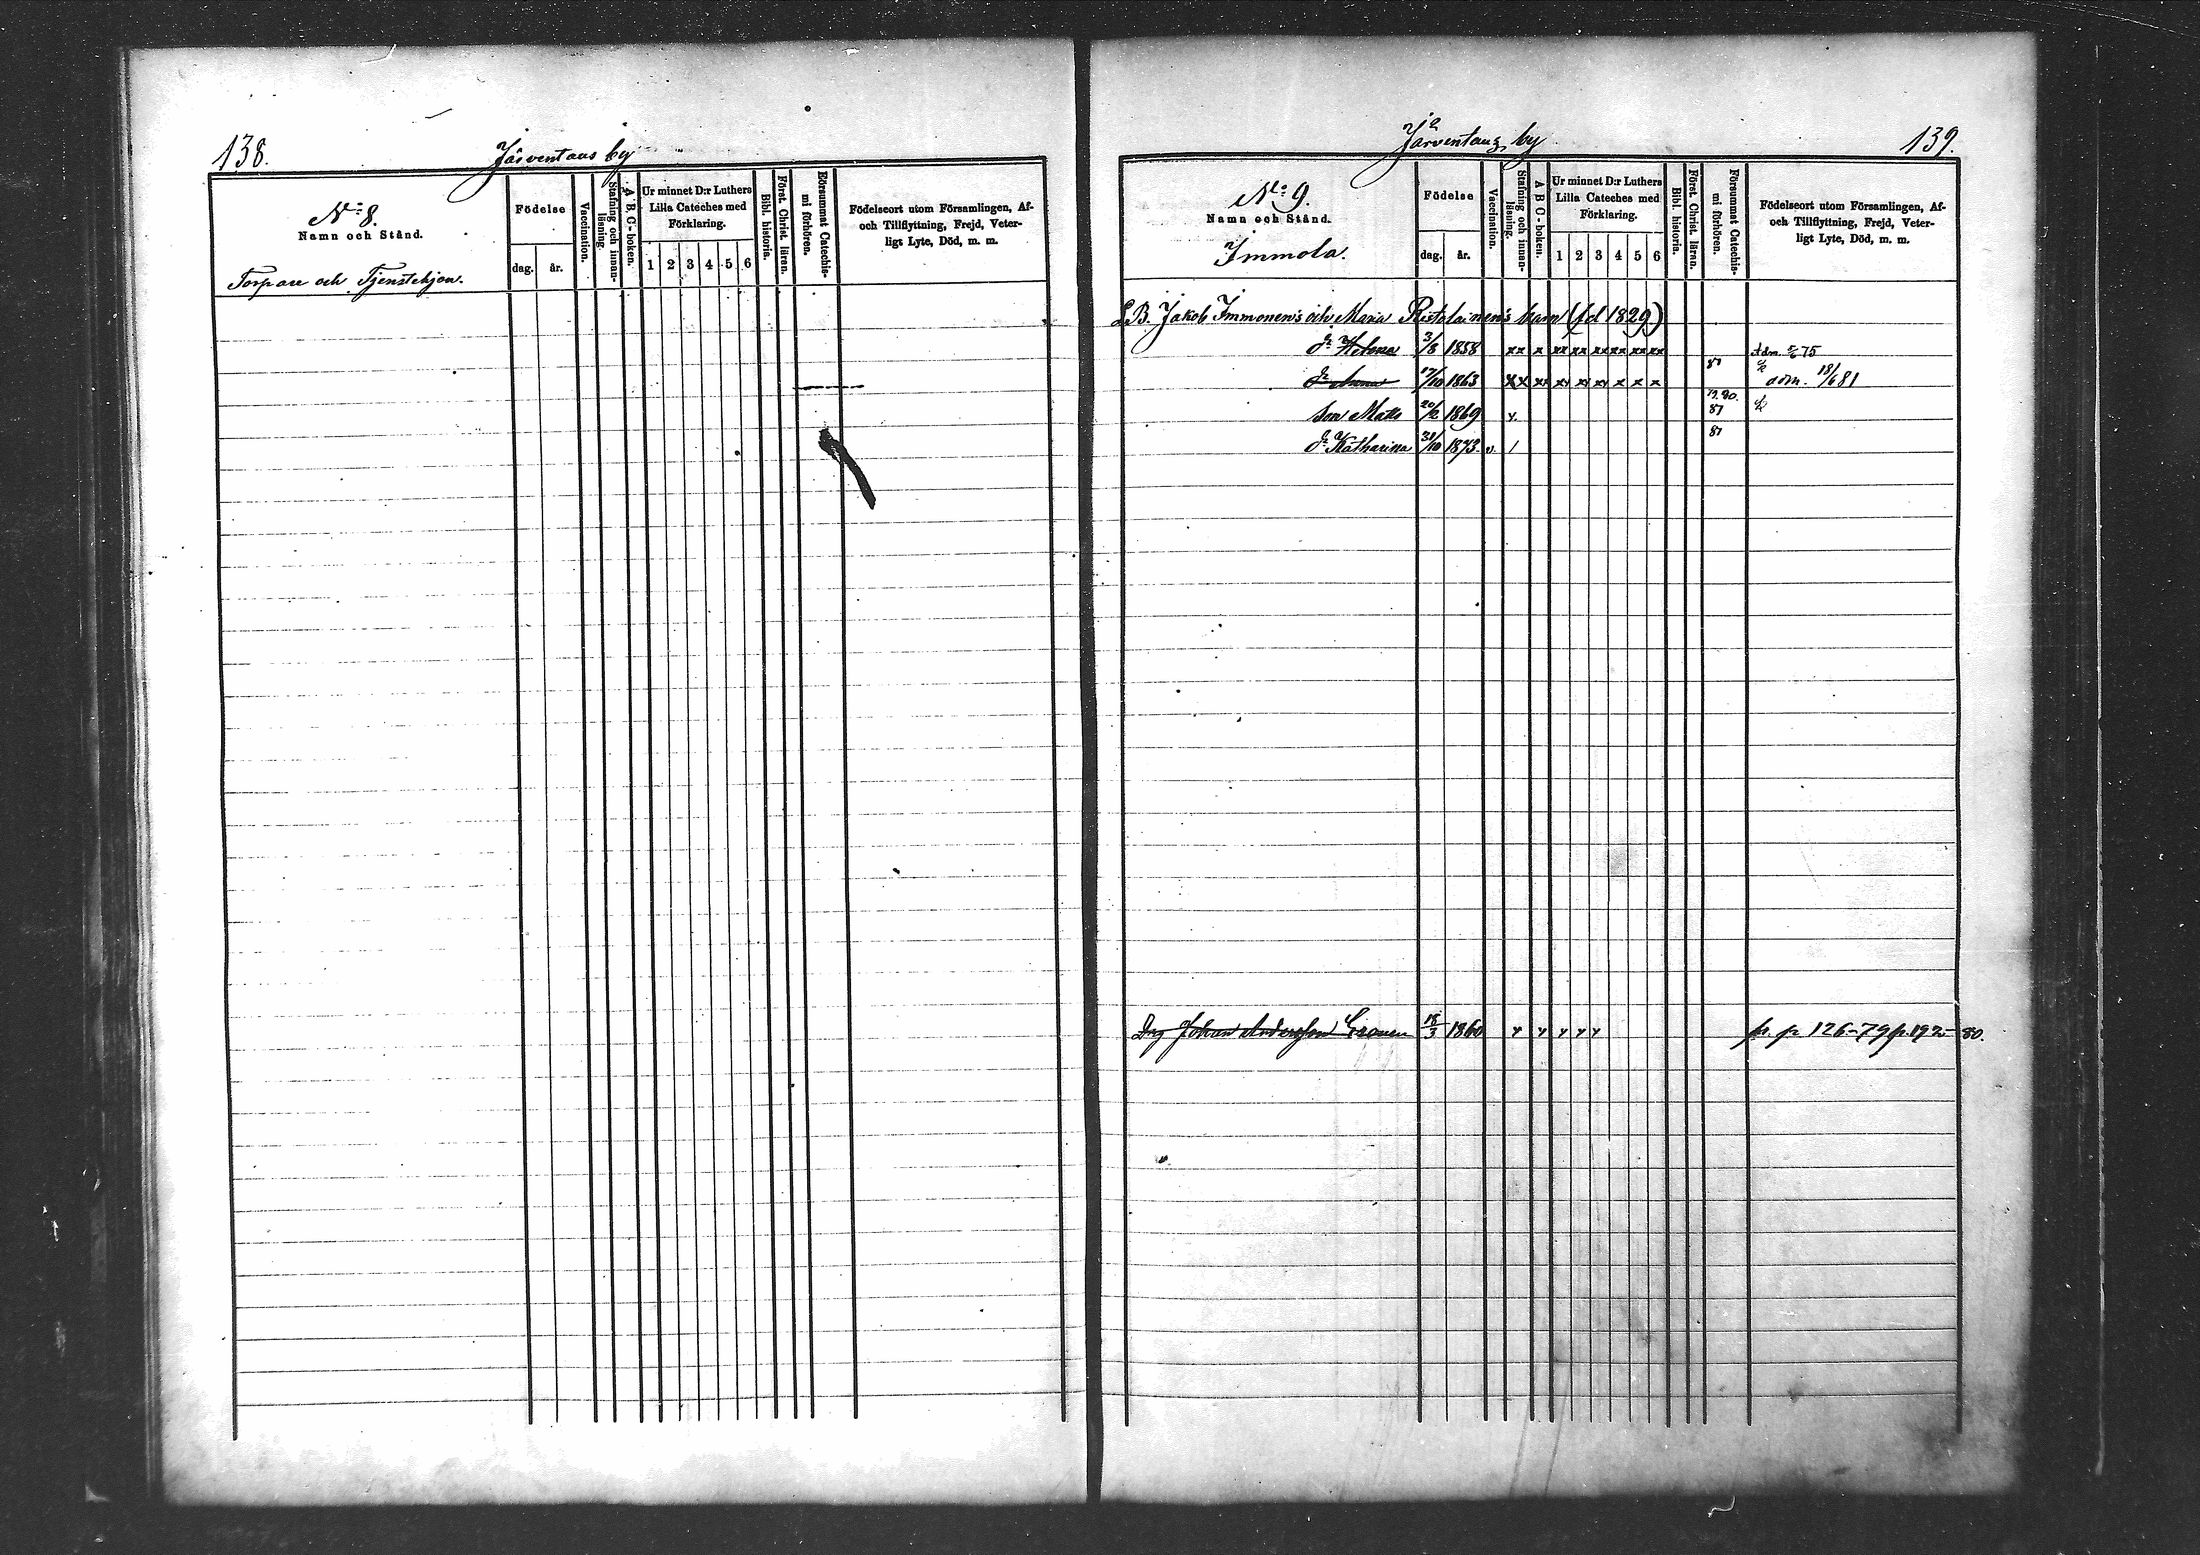 138.
Järventaus by
No 8.
Namn och Stånd.
Torpare och Tjenstehjon.
Födelse
dag.
år.
Vaccination.
Stafning och innan-
läsning.
A B C-boken.
Ur minnet D:r Luthers
Lilla Cateches med
Förklaring.
1 2 3 4 5 6
Bibl. historia.
Först. Christ. läran.
Försummat Catechis-
mi förhören.
Födelseort utom Församlingen, Af-
och Tillflyttning, Frejd, Veter-
ligt Lyte, Död, m. m.
Järventaus by
139.
No 9.
Namn och Stånd.
Immola.
Födelse
dag.
år.
Vaccination.
Stafning och innan-
läsning.
A B C-boken.
Ur minnet D:r Luthers
Lilla Cateches med
Förklaring.
1 2 3 4 5 6
Bibl. historia.
Först. Christ. läran.
Försummat Catechis-
mi förhören.
Födelseort utom Församlingen, Af-
och Tillflyttning, Frejd, Veter-
ligt Lyte, Död, m. m.
LB. Jakob Immonen's och Maria Ristolainen's barn (fd 1829)
dr Helena 3/8 1858 xx x xx xx xx xx xx xx Adm. 75
dr Anna 17/10 1863 xx xx xx xx xx x x x 80 adm. 18/6 81
son Matts 20/2 1869 x. 79.80. 87
dr Katharina 30/10 1873 v. / 87
Drg Johan Andersson 18/3 1860 x x x x x fr. p 126-79 p. 192-80.